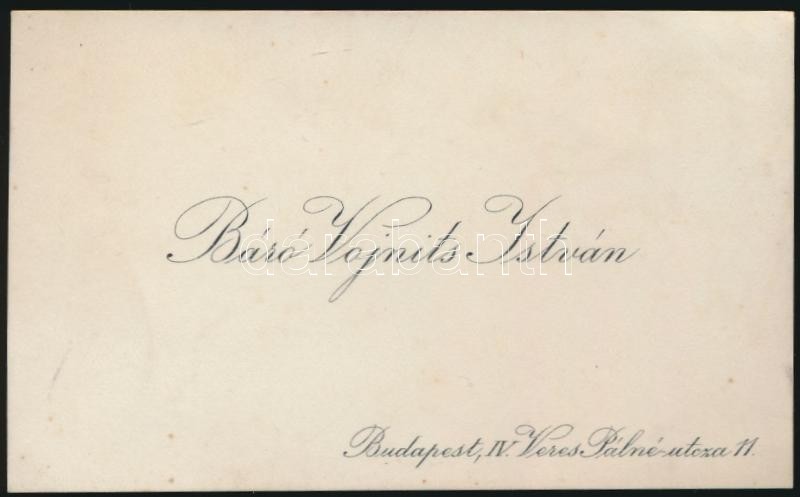 Báró Vojnits István
darabanth
Budapest, IV. Veres Pálné-utcza 11.